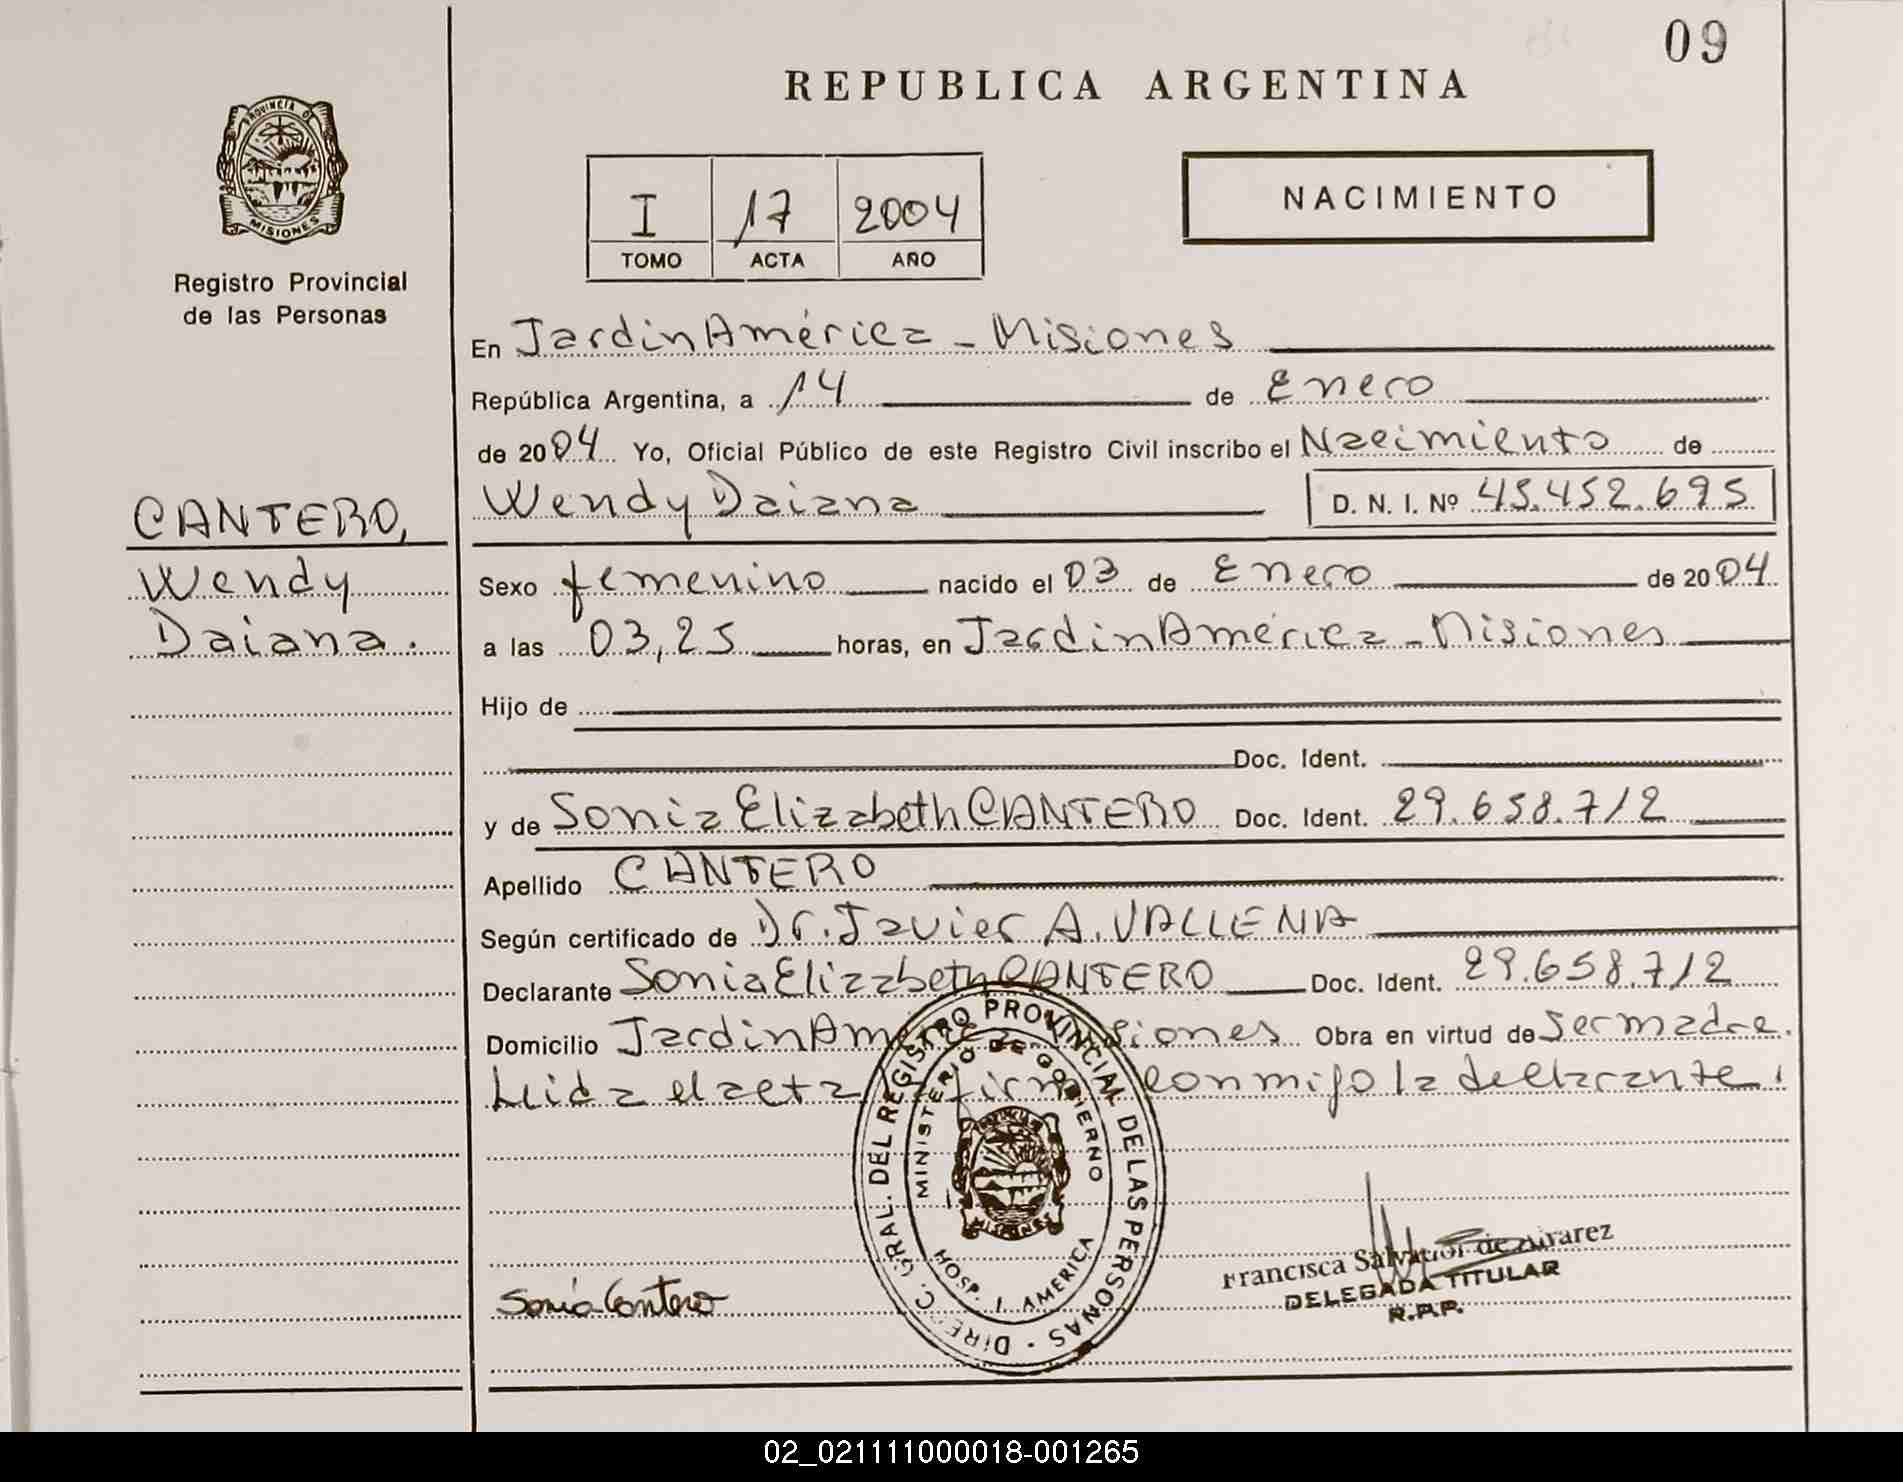 09
REPUBLICA ARGENTINA
PROVINCIA D
MISIONES
Registro Provincial
de las Personas
I 17 2004
TOMO ACTA AÑO
NACIMIENTO
En Jardin América - Misiones
República Argentina, a 14 de Enero
de 2004 Yo, Oficial Público de este Registro Civil inscribo el Nacimiento de
Wendy Daiana D. N. I. Nº 45.452.695
CANTERO,
Wendy
Daiana.
Sexo femenino nacido el 03 de Enero de 2004
a las 03,25 horas, en Jardin América - Misiones
Hijo de
Doc. Ident.
y de Sonia Elizabeth CANTERO Doc. Ident. 29.658.712
Apellido CANTERO
Según certificado de Dr. Javier A. VALLENA
Declarante Sonia Elizabeth CANTERO Doc. Ident. 29.658.712
Domicilio Jardin América Misiones Obra en virtud de ser madre.
Leida el acta firma conmigo la declarante.
DIREC. GRAL. DEL REGISTRO PROVINCIAL DE LAS PERSONAS
MINISTERIO DE GOBIERNO
MISIONES
HOSP. J. AMERICA
Sonia Cantero
Francisca Salvador de Alvarez
DELEGADA TITULAR
R.P.P.
02_021111000018-001265